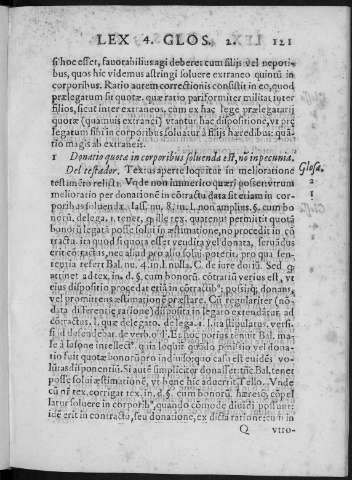 LEX 4. GLOS. 2. 121
si hoc esset, fauorabilius agi deberet cum filijs vel nepoti-
bus, quos hic videmus astringi soluere extraneo quintū in
corporibus. Ratio autem correctionis consistit in eo, quod
prælegatum sit quotæ. quæ ratio pariformiter militat inter
filios, sicut inter extraneos. cum ex hac lege prælegatarij
quotæ (quamuis extranei) vtantur hac dispositione, vt præ
legatum sibi in corporibus soluatur à filijs hæredibus: quā-
to magis ab extraneis.
1 Donatio quota in corporibus soluenda est, nō in pecunia.
Del testador. Textus aperte loquitur in melioratione Glosa.
testamēto relicta. Vnde non immerito quæri posset vtrum 2
melioratio per donationem in cōtractu data sit etiam in cor- 1
poribus soluenda. Iass. nu. 8. in l. non amplius. §. cum bo
norū. delega. 1. tenet, q, ille tex. quatenus permittit quotā
bonorū legatā posse solui in æstimatione, nō procedit in cō
tractu. ita quod si quota esset vendita vel donata, seruādus
erit cōtractus, nec aliud pro alio solui poterit. pro qua sen-
tentia refert Bal. nu. 4. in l. nulla. C. de iure dotiū. Sed q,
attinet ad tex. in. d. §. cum bonorū. cōtrariū verius est, vt
eius dispositio procedat etiā in cōtractib⁹: positq; donans,
vel promittens æstimationē præstare. Cū regulariter (nō-
data differentiæ ratione) disposita in legato extendātur, ad
cōtractus. l. quæ delegato. delega. 1. l. ita stipulatus. versi-
si. ff defendebat. de verb. o'l'. Et hoc potius tenuit Bal. ma-
le à Iasone intellect⁹.
tio fuit quotæ bonorū pro indiuiso; quo casu est euidēs vo-
lūtas disponentiū. Si autē simpliciter donasset: tūc Bal. tenet
posse solui æstimationē, vt bene hic aduertit Tello. Vnde
cū nr̄a tex. corrigat tex. in. d. §. cum bonorū. hæresq; cōpel
latur soluere in corporib⁹, quando cōmode diuidi possunt:
idē erit in contractu, seu donatione, ex dicta ratione: cū in
Q vtro-